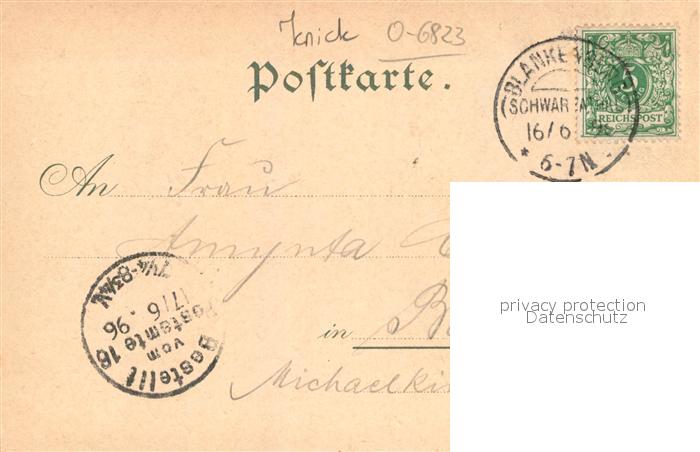 Knick O-6823
Postkarte.
BLANKENBURG
(SCHWARZATHAL)
16/6 96
* 6-7N *
5
REICHSPOST
An Frau
Amynta
in B
Michaelki
Bestellt
vom
Postamte 16
17/6. 96
7¼-8¾N
privacy protection
Datenschutz